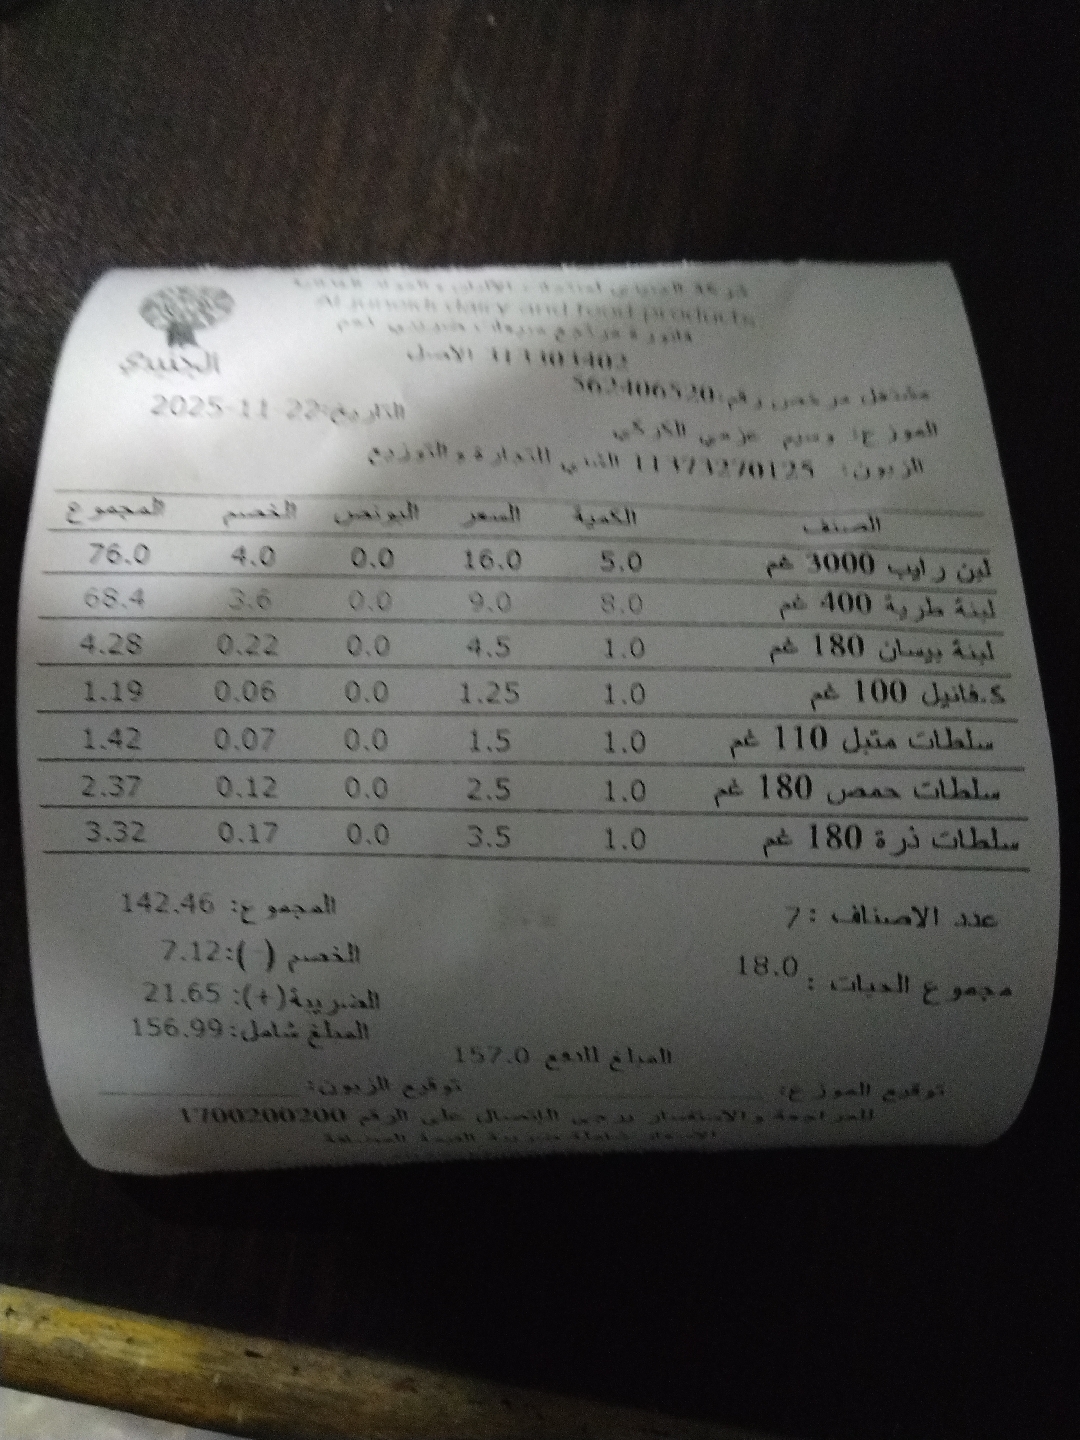 الجنيدي
شركة الجنيدي لمنتجات الألبان والمواد الغذائية
Al juneidi dairy and food products
فاتورة مراجع مبيعات ضريبي رقم
313303402 الأصل
مشتغل مرخص رقم:562406520
التاريخ:2025-11-22
الموزع: وسيم عزمي الكركي
الزبون: 11373270125 للتجارة والتوزيع
الصنف الكمية السعر البونص الخصم المجموع
لبن رايب 3000 غم 5.0 16.0 0.0 4.0 76.0
لبنة طرية 400 غم 8.0 9.0 0.0 3.6 68.4
لبنة بيسان 180 غم 1.0 4.5 0.0 0.22 4.28
ك.فانيل 100 غم 1.0 1.25 0.0 0.06 1.19
سلطات متبل 110 غم 1.0 1.5 0.0 0.07 1.42
سلطات حمص 180 غم 1.0 2.5 0.0 0.12 2.37
سلطات ذرة 180 غم 1.0 3.5 0.0 0.17 3.32
عدد الاصناف :7 المجموع: 142.46
الخصم (-):7.12
مجموع الحبات : 18.0 الضريبة(+): 21.65
المبلغ شامل:156.99
المبلغ للدفع 157.0
توقيع الموزع: توقيع الزبون:
للمراجعة والاستفسار يرجى الإتصال على الرقم 1700200200
الاسعار شاملة ضريبة القيمة المضافة